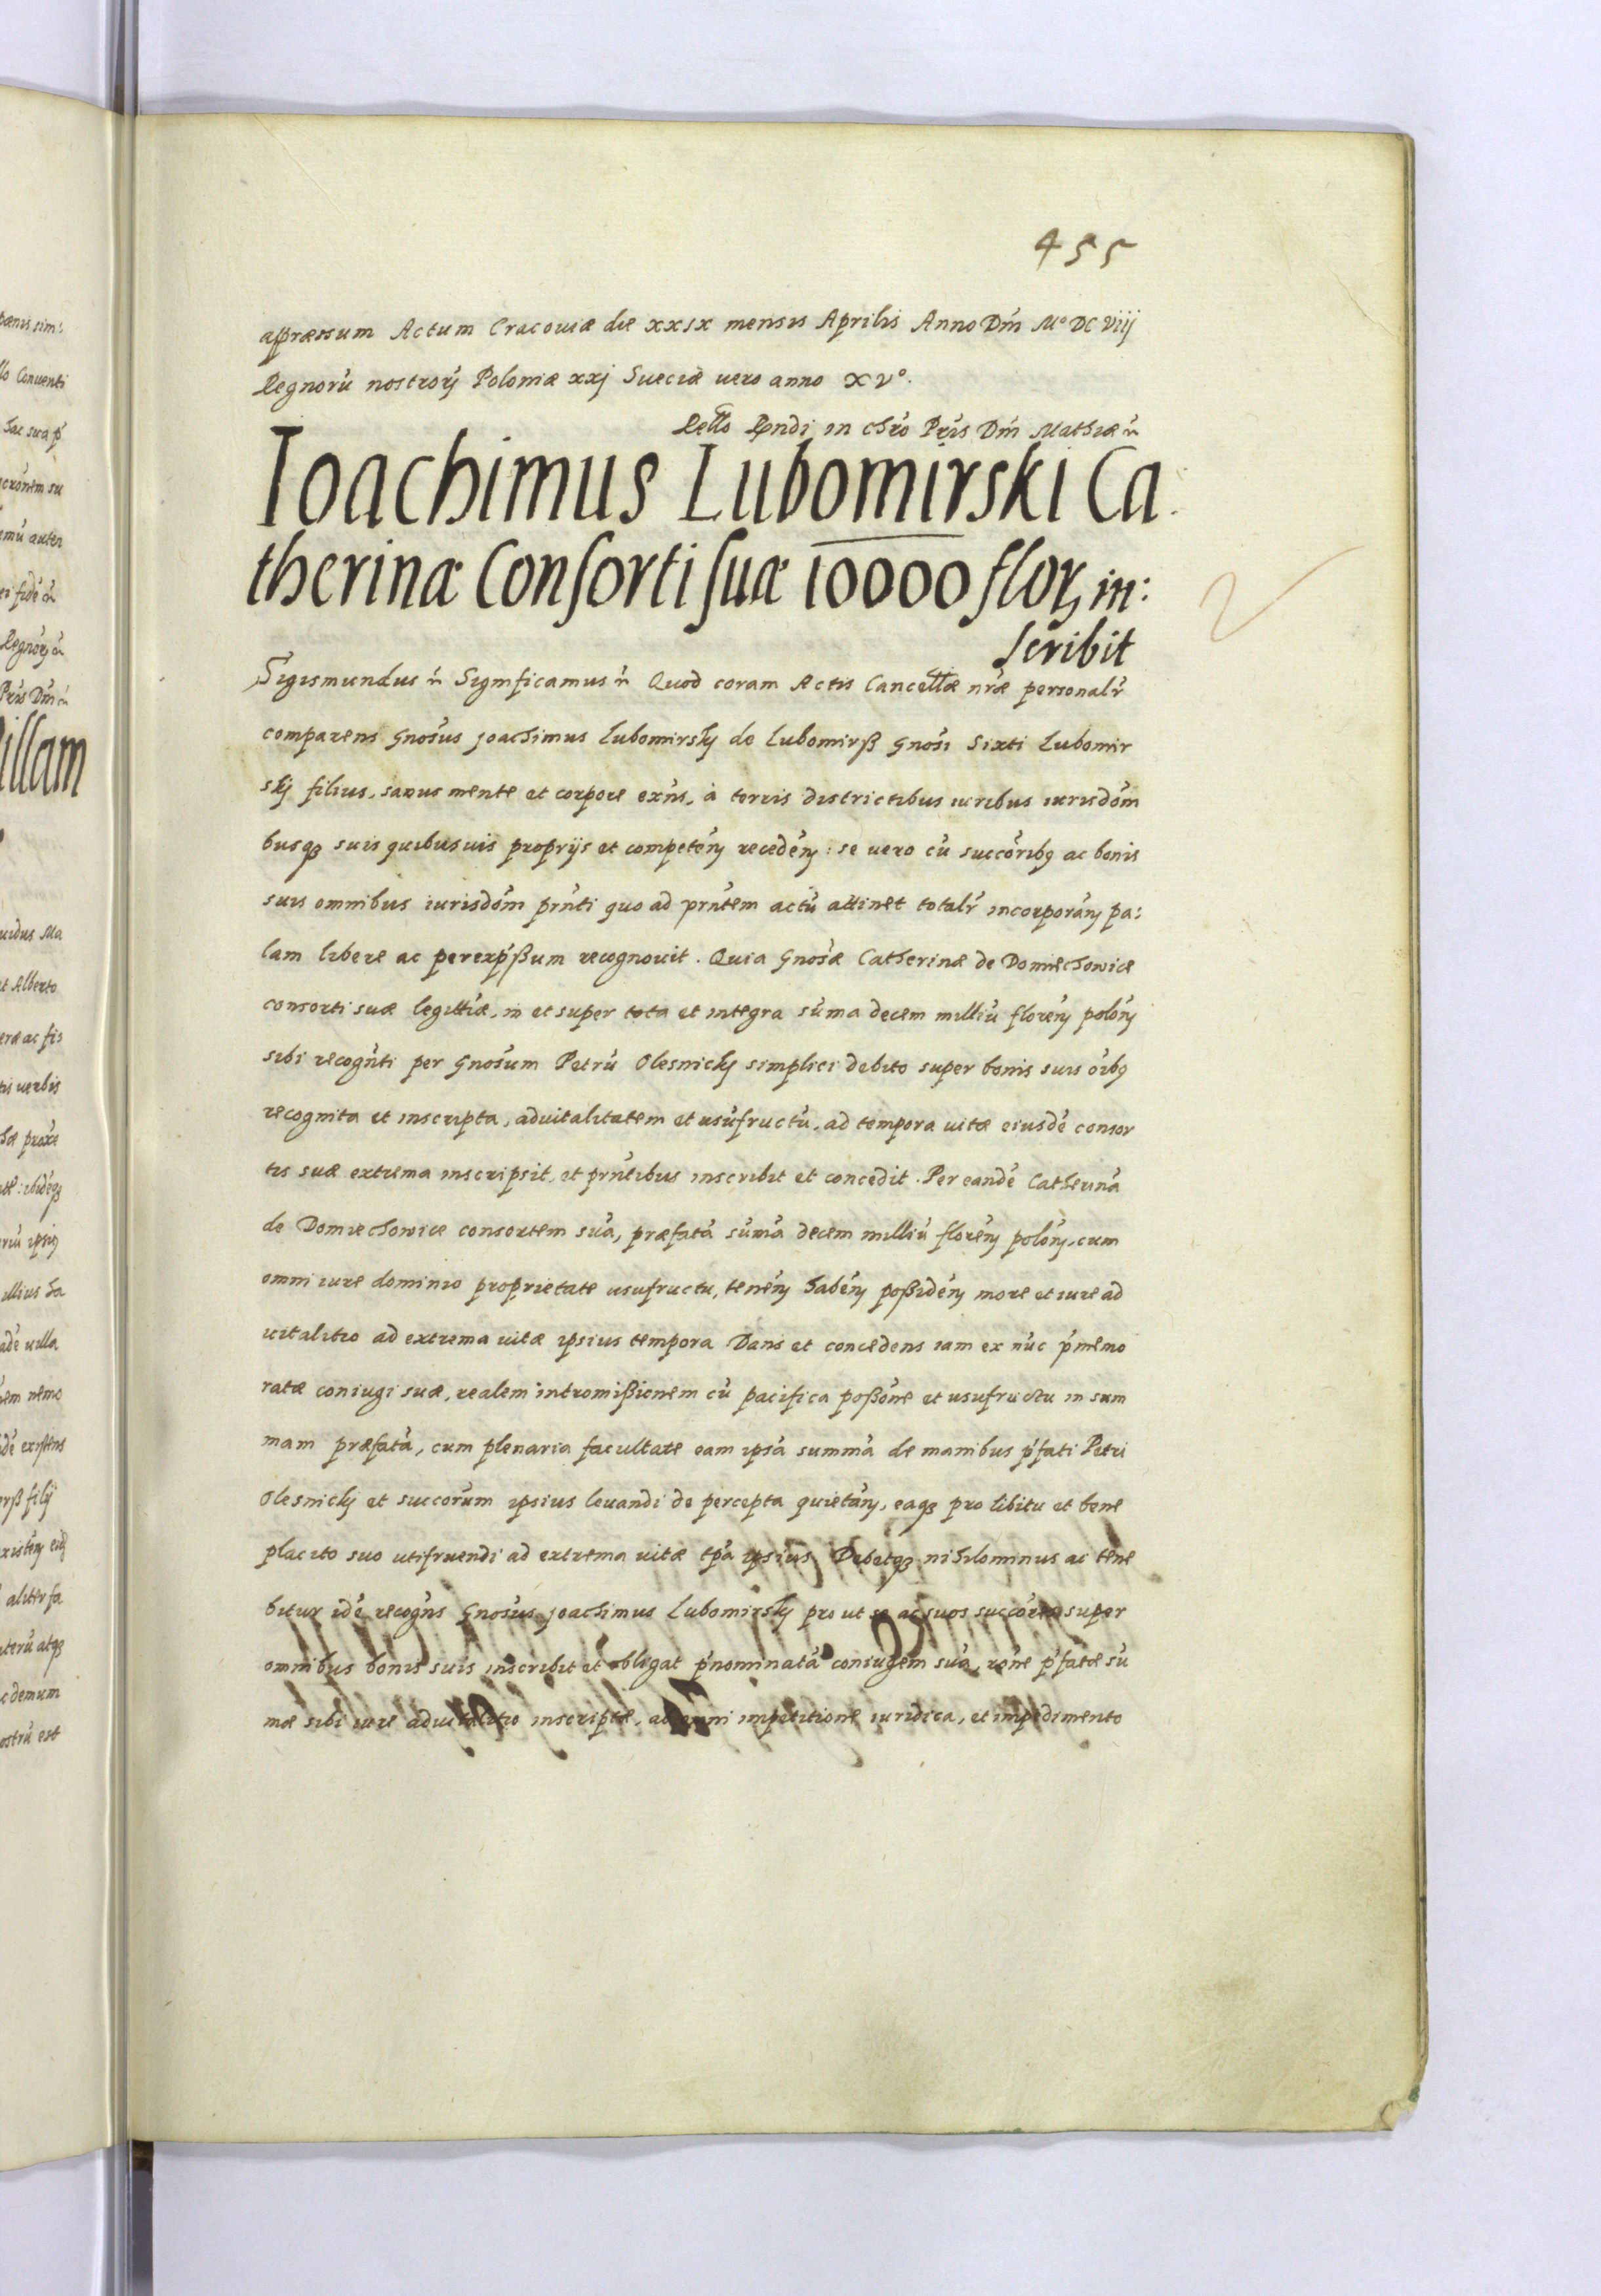 455
appræssum Actum Cracouiæ die xxix mensis Aprilis Anno Dni Mº DC viij
Regnorũ nostrorũ Poloniæ xxj Sueciæ uero anno xvº.
Rello Rndi in chro Pris Dni Mathiæ
Ioachimus Lubomirski Ca:
therinæ Consorti suæ 10000 flor, in:
scribit
Sigismundus Significamus Quod coram Actis Cancellæ nræ personalr
comparens Gnosus Joachimus Lubomirskj de Lubomirß Gnosi Sixti Lubomir
skj filius, sanus mente et corpore exns, à terris districtibus iuribus iurisdom
busq3 suis quibusuis proprijs et competen recedẽn: se uero cũ succoribq ac bonis
suis omnibus iurisdom prnti quo ad prntem actũ attinet totalr incorporan pa:
lam libere ac perexpßum recognouit. Quia Gnosæ Catherinæ de Domiechowice
consorti suæ legittiæ, in et super tota et integra sũma decem milliũ floren polon
sibi recognti per Gnosum Petrũ Olesnickj simplici debito super bonis suis oibq
recognita et inscripta, aduitalitatem et usũfructũ, ad tempora uitæ eiusdẽ consor
tis suæ extrema inscripsit, et prntibus inscribit et concedit. Per eandẽ Catherinã
de Domiechowice consortem suã, præfatã sũmã decem milliũ floren polon, cum
omni iure dominio proprietate usufructu, tenẽn habẽn poßidẽn more et iure ad
uitalitio ad extrema uitæ ipsius tempora Dans et concedens iam ex nũc pmemo
ratæ coniugi suæ, realem intromißionem cũ pacifica poßone et usufructu in sum
mam præfatã, cum plenaria facultate eam ipsã summã de manibus pfati Petri
Olesnickj et succorum ipsius leuandi de percepta quietan, eaq3 pro libitu et bene
placito suo utifruendi ad extrema uitæ tpa ipsius Debetq3 nihilominus ac tene
bitur idẽ recogns Gnosus Joachimus Lubomirskj pro ut se ac suos succores super
omnibus bonis suis inscribit et obligat pnominatã coniugem suã, rone pfatæ sũ
mæ sibi iure aduitalitio inscriptæ, ab omni impetitione iuridica, et impedimento